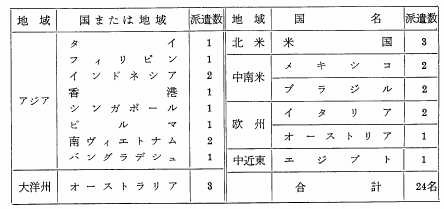 地域 国または地域 派遣数
アジア
タイ 1
フィリピン 1
インドネシア 2
香港 1
シンガポール 1
ビルマ 1
南ヴィエトナム 2
バングラデシュ 1
大洋州 オーストラリア 3
地域 国名 派遣数
北米 米国 3
中南米
メキシコ 2
ブラジル 2
欧州
イタリア 2
オーストリア 1
中近東 エジプト 1
合計 24名